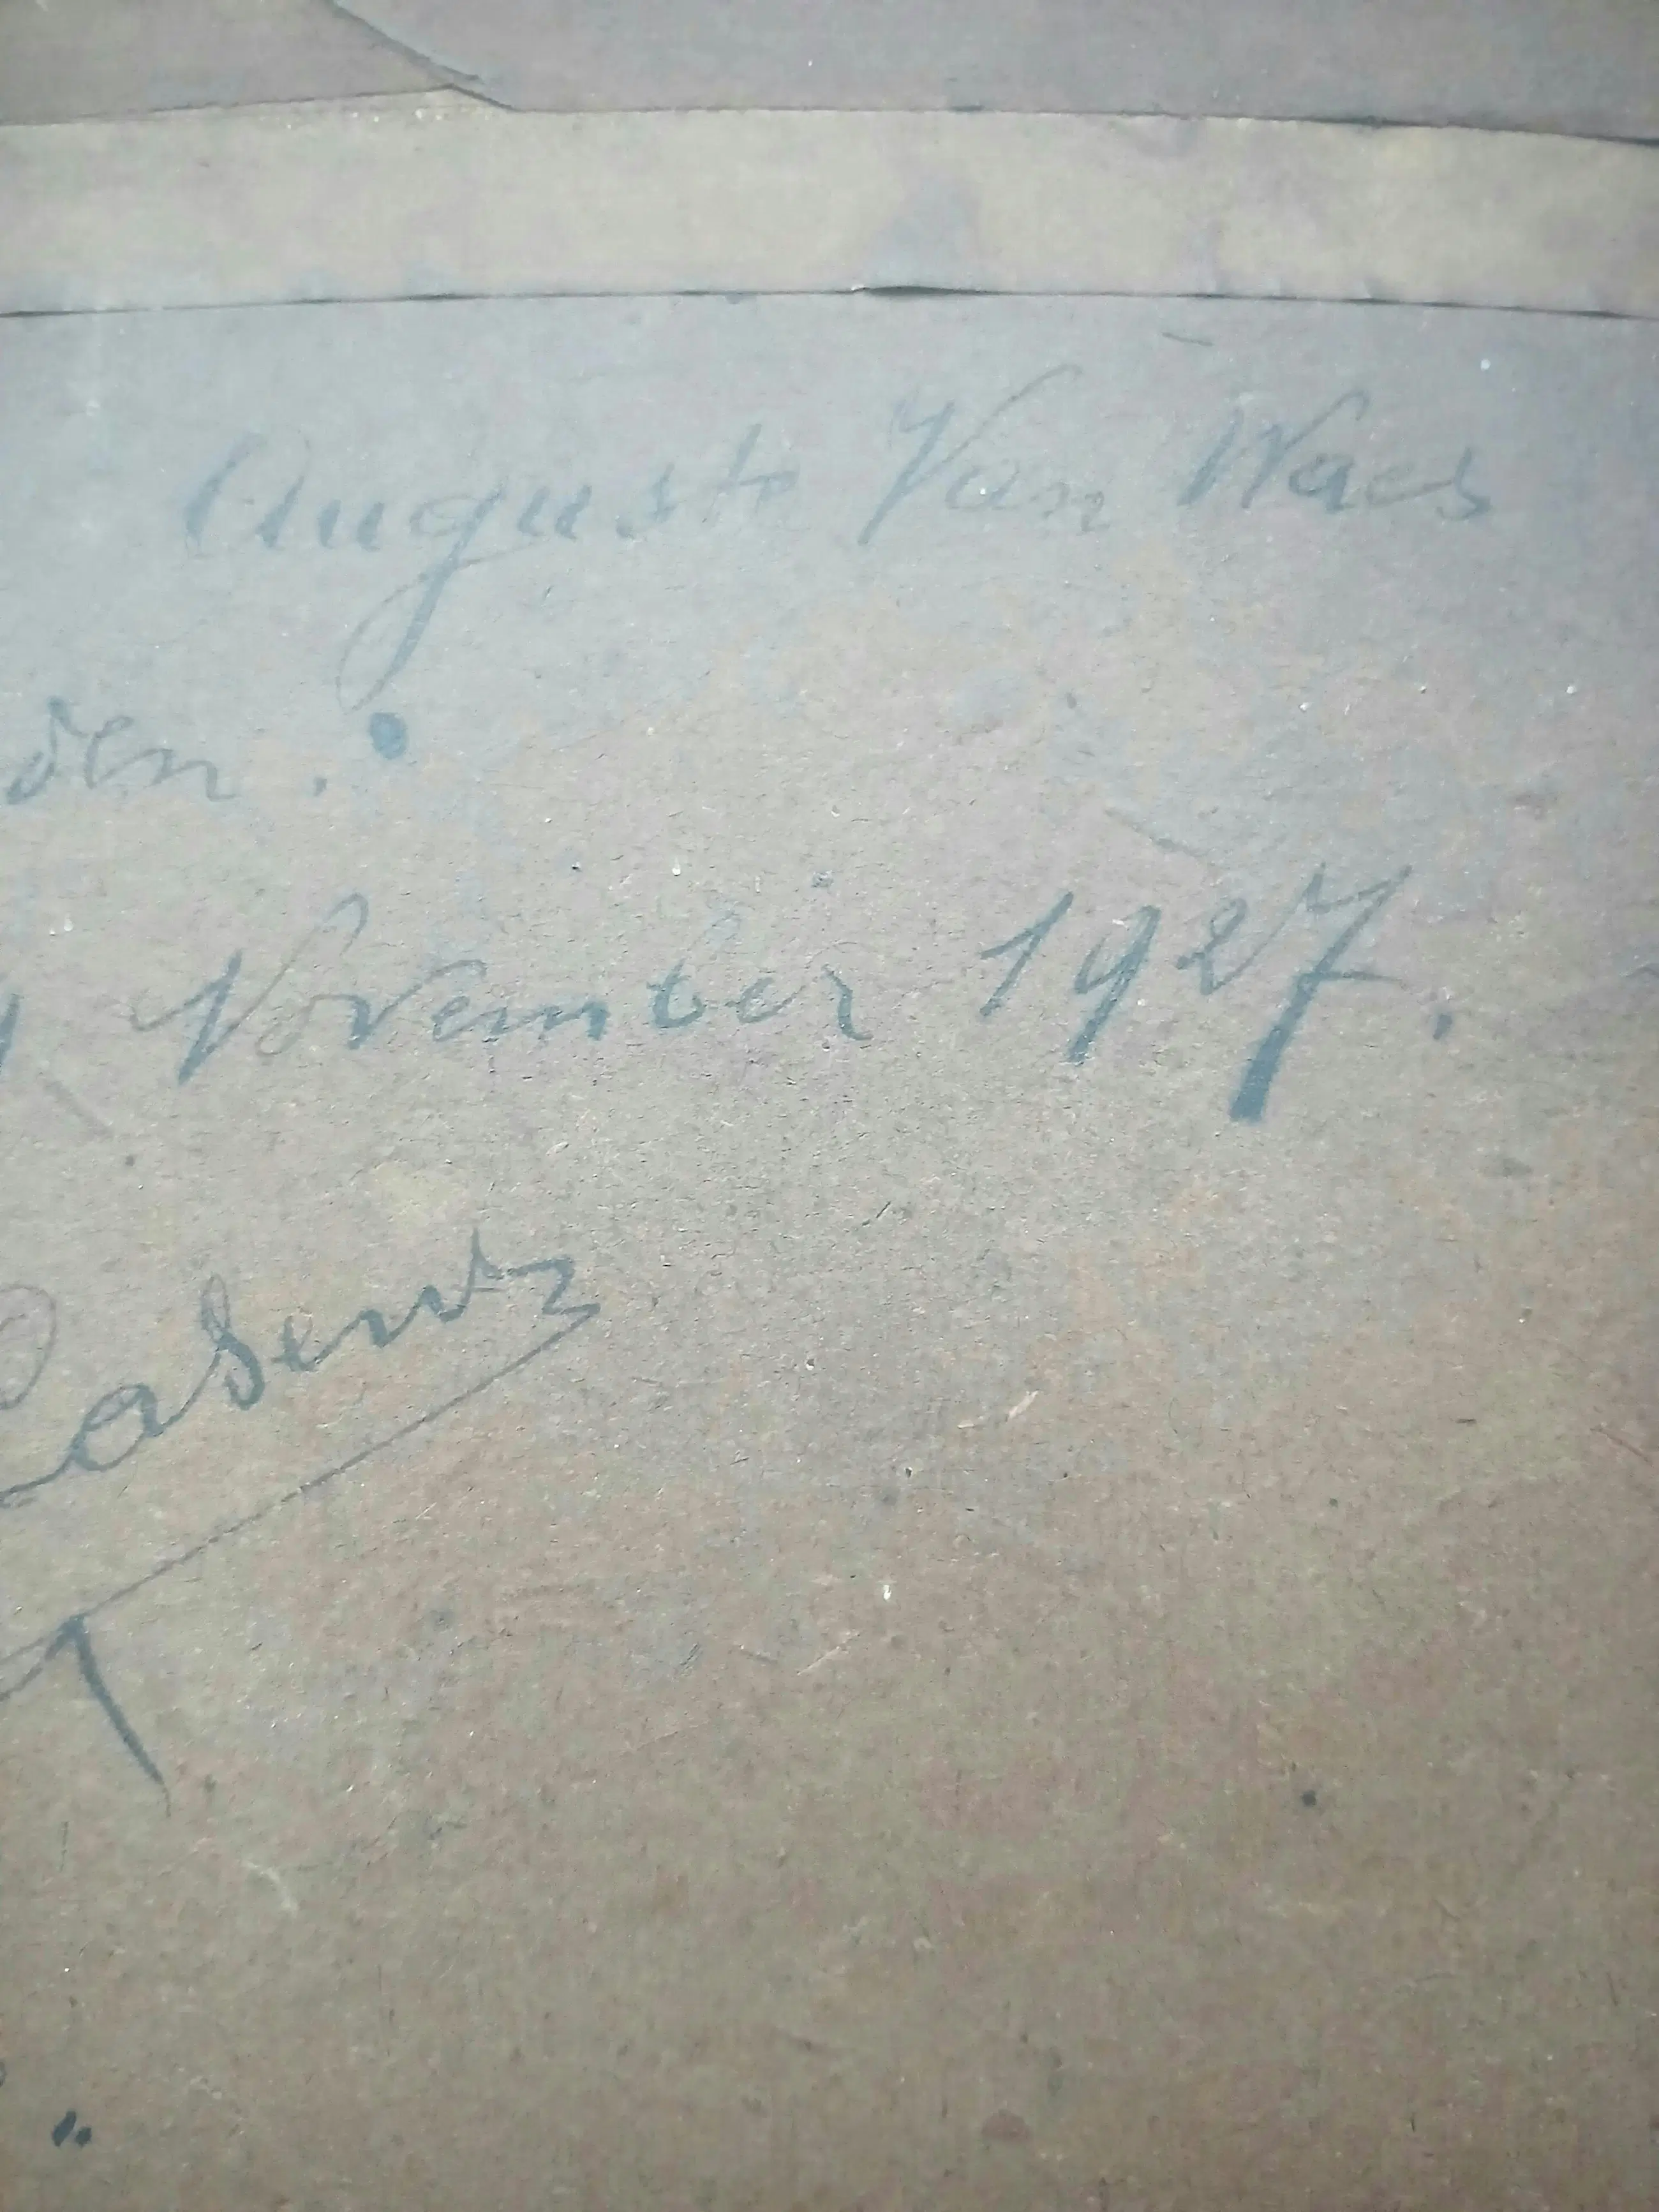 Auguste Van Waes
den.
November 1927.